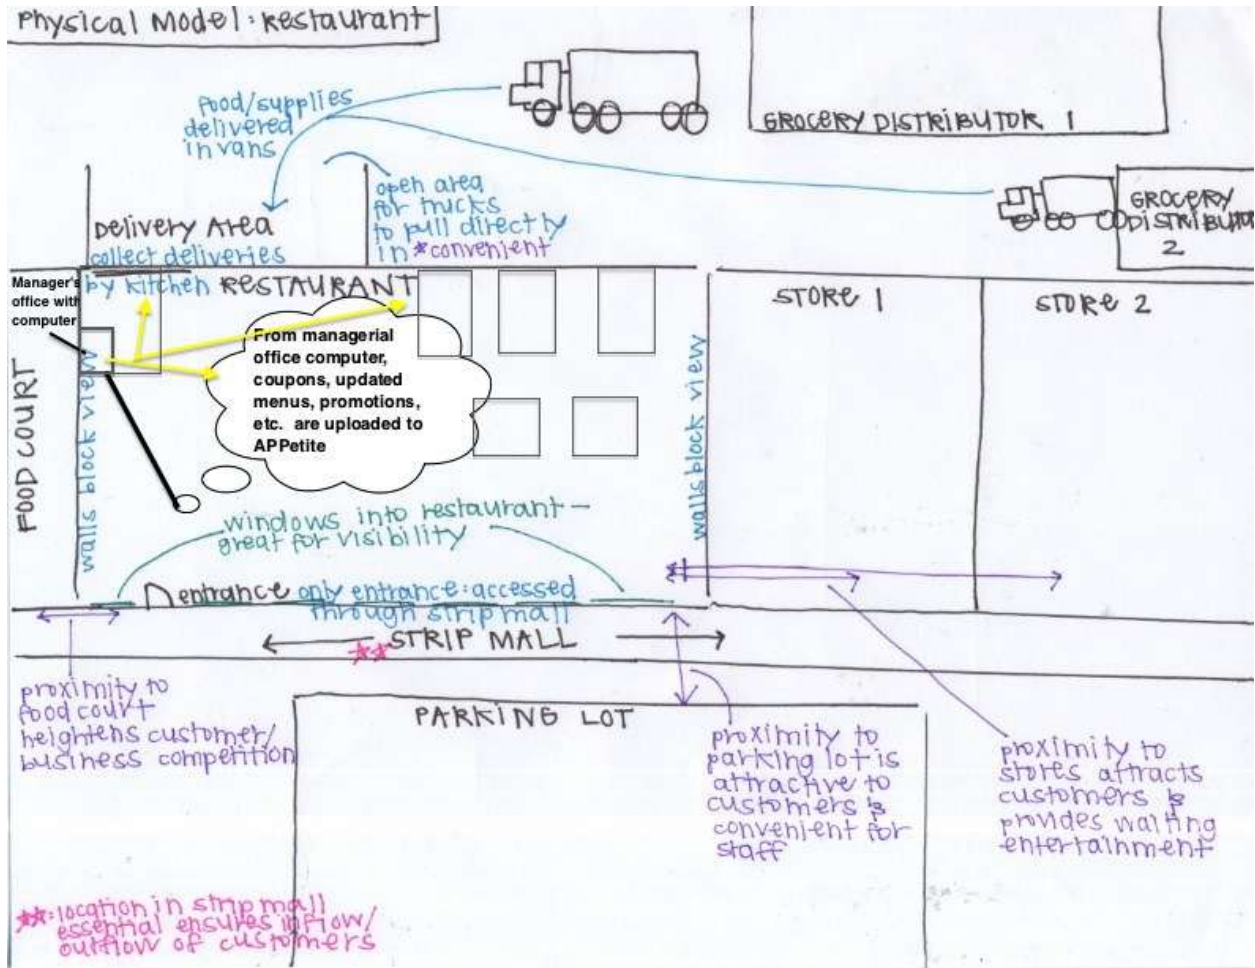 Physical Model: Restaurant
food/supplies
delivered
in vans
GROCERY DISTRIBUTOR 1
GROCERY
DISTRIBUTOR
2
open area
for trucks
to pull directly
in *convenient
Delivery Area
collect deliveries
by kitchen
RESTAURANT
Manager's
office with
computer
From managerial
office computer,
coupons, updated
menus, promotions,
etc. are uploaded to
APPetite
STORE 1
STORE 2
FOOD COURT
walls block view
walls block view
windows into restaurant —
great for visibility
entrance
only entrance: accessed
through strip mall
** STRIP MALL
PARKING LOT
proximity to
food court
heightens customer/
business competition
proximity to
parking lot is
attractive to
customers &
convenient for
staff
proximity to
stores attracts
customers &
provides waiting
entertainment
**: location in strip mall
essential ensures inflow/
outflow of customers